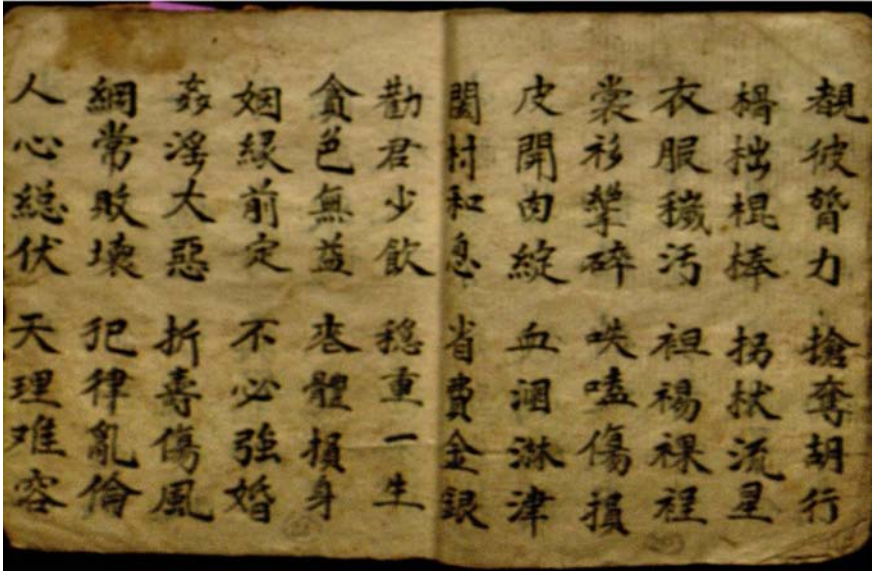 覩彼膂力 搶奪胡行
棍棒 拐杖流星
衣服穢污 袒裼裸裎
裳衫碎 嗑傷損
皮開肉綻 血淋津
村和息 省費金銀
勸君少飲 穩重一生
貪色無益 喪體損身
姻緣前定 不必強婚
姦淫大惡 折壽傷風
綱常敗壞 犯律亂倫
人心総伏 天理难容